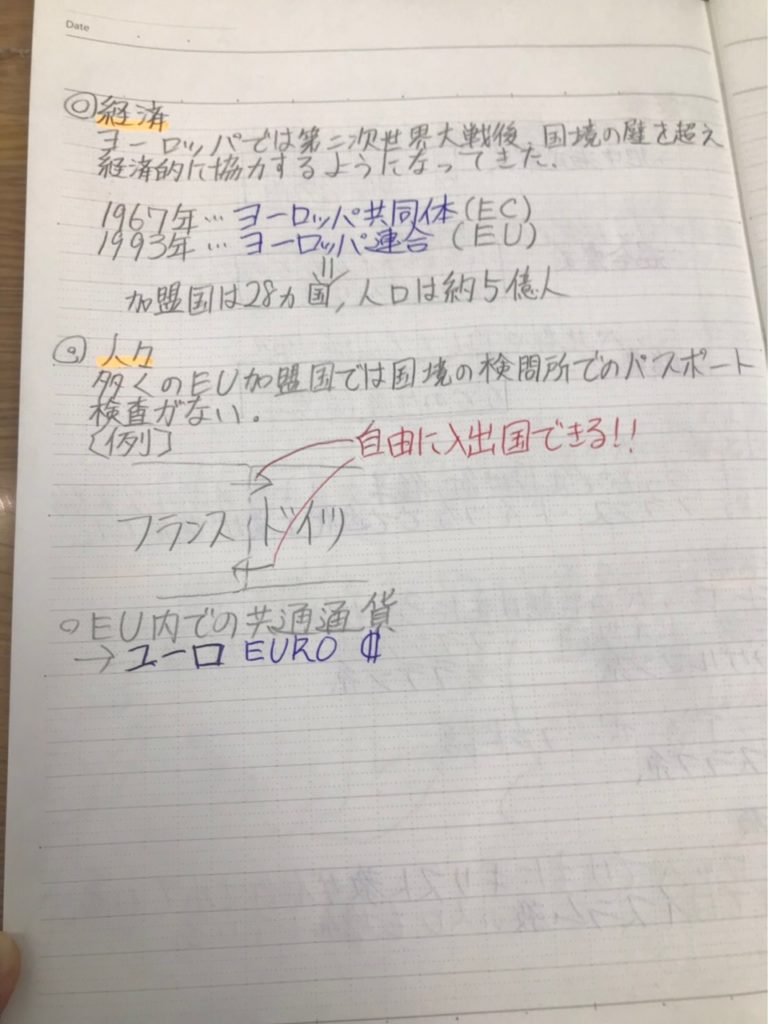 Date
◎経済
ヨーロッパでは第二次世界大戦後、国境の壁を超え
経済的に協力するようになってきた.
1967年…ヨーロッパ共同体(EC)
1993年…ヨーロッパ連合(EU)
加盟国は28ヵ国,人口は約5億人
多くのEU加盟国では国境の検問所でのパスポート
検査がない.
[例]
自由に入出国できる!!
フランス ドイツ
○EU内での共通通貨
→ユーロ EURO